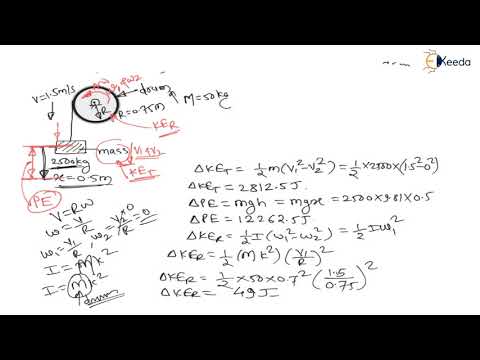 EKeeda
V=1.5m/s
W1, W2
drum
M=50kg
R
R=0.75m
KER
mass
V1, V2
2500kg
x=0.5m
KET
PE
V=RW
W=V/R
W1=V1/R, W2=V2/R=0
I=MK²
I=MK²
drum
ΔKET=1/2 m(V1²-V2²)=1/2×2500×(1.5²-0²)
ΔKET=2812.5J
ΔPE=mgh=mgx=2500×9.81×0.5
ΔPE=12262.5J
ΔKER=1/2 I(W1²-W2²)=1/2 IW1²
ΔKER=1/2 (MK²)(V1/R)²
ΔKER=1/2×50×0.7²(1.5/0.75)²
ΔKER=49J